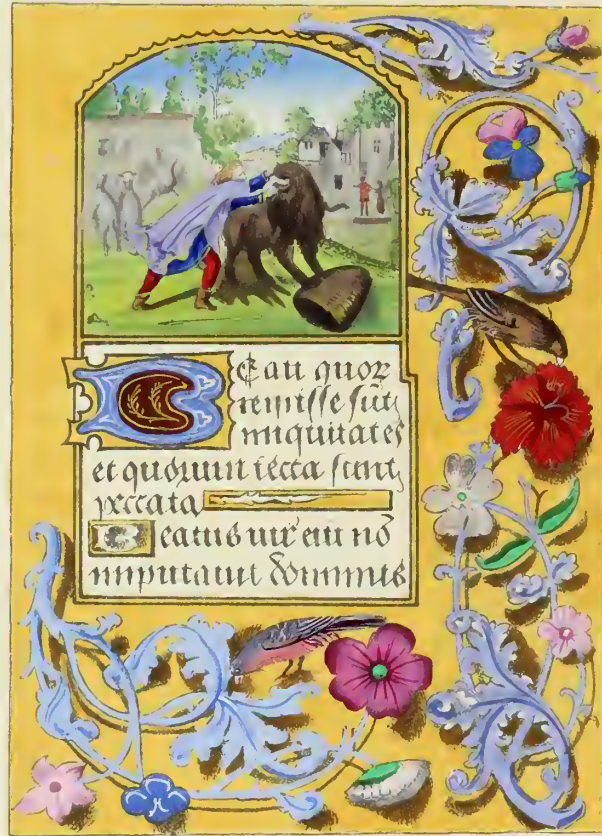 Beati quoꝝ
remisse sūt
iniquitates
et quorum tecta sunt
peccata
Beatus uir cui nō
imputauit dominus